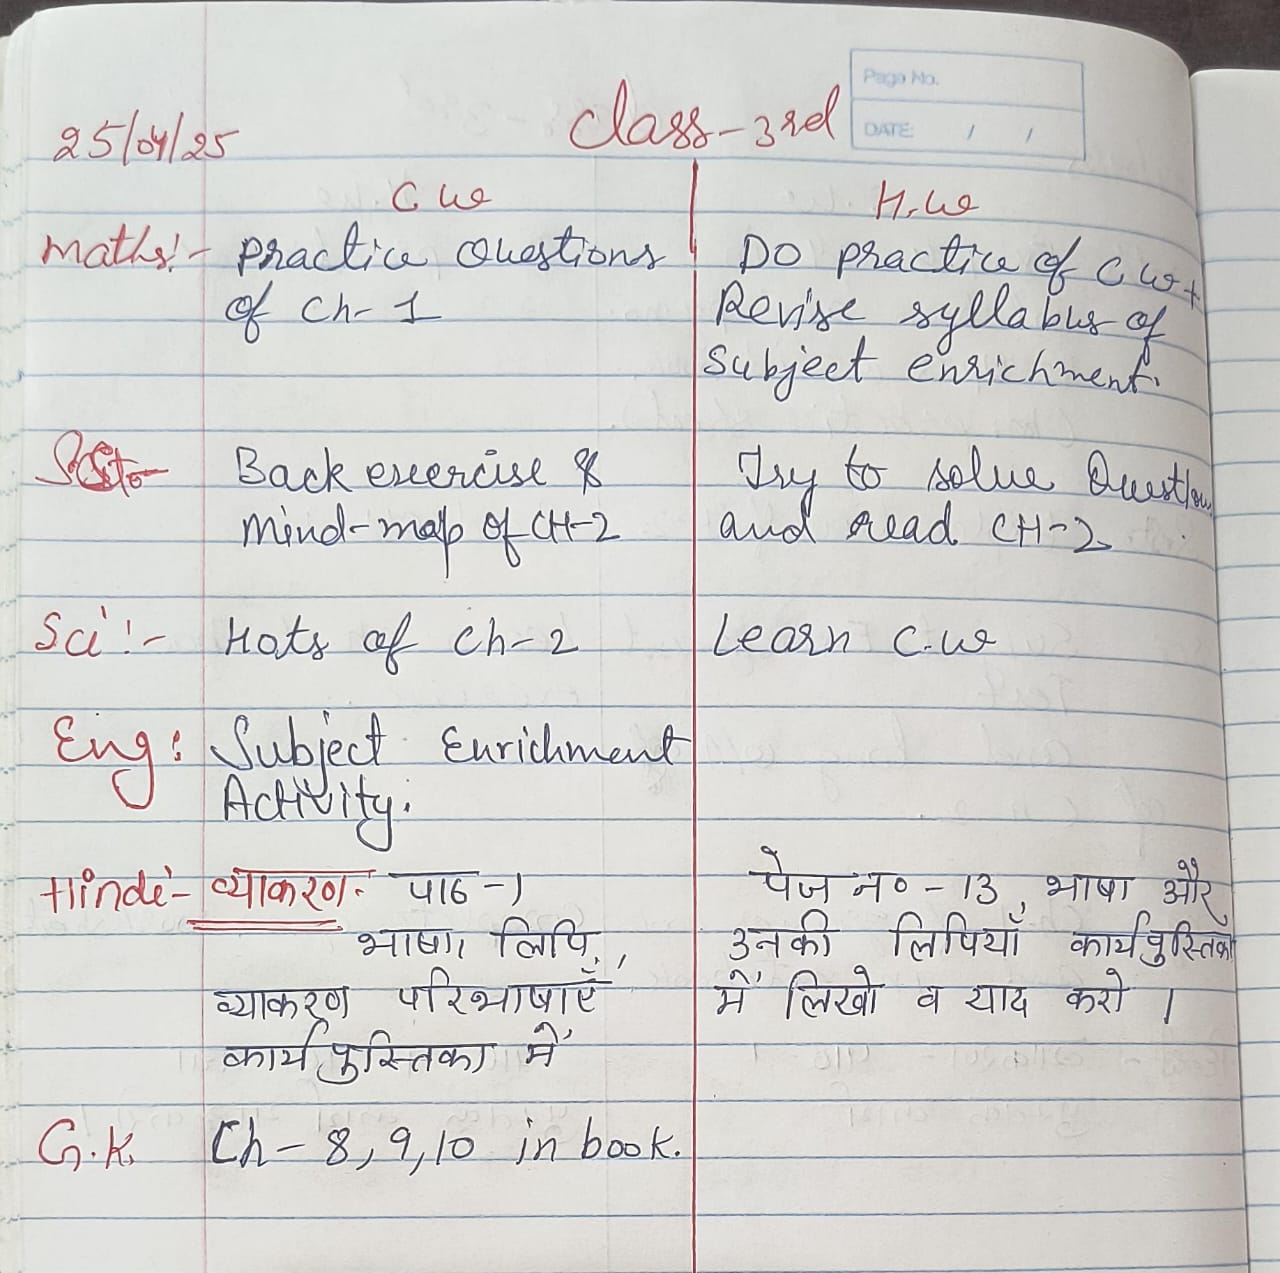 Page No.
DATE: / /
25/04/25
Class-3rd
C.W
H.W
Maths:- Practice Questions
of Ch-1
Do practice of C.W +
Revise syllabus of
Subject enrichment.
Back exercise &
Mind-map of CH-2
Try to solve Question
and read CH-2
Sci:- Hots of Ch-2
Learn C.W
Eng: Subject Enrichment
Activity.
Hindi:- व्याकरण- पाठ-1
भाषा, लिपि,
व्याकरण परिभाषाएँ
कार्य पुस्तिका में
पेज न० - 13, भाषा और
उनकी लिपियाँ कार्यपुस्तिका
में लिखो व याद करो ।
G.K. Ch-8,9,10 in book.